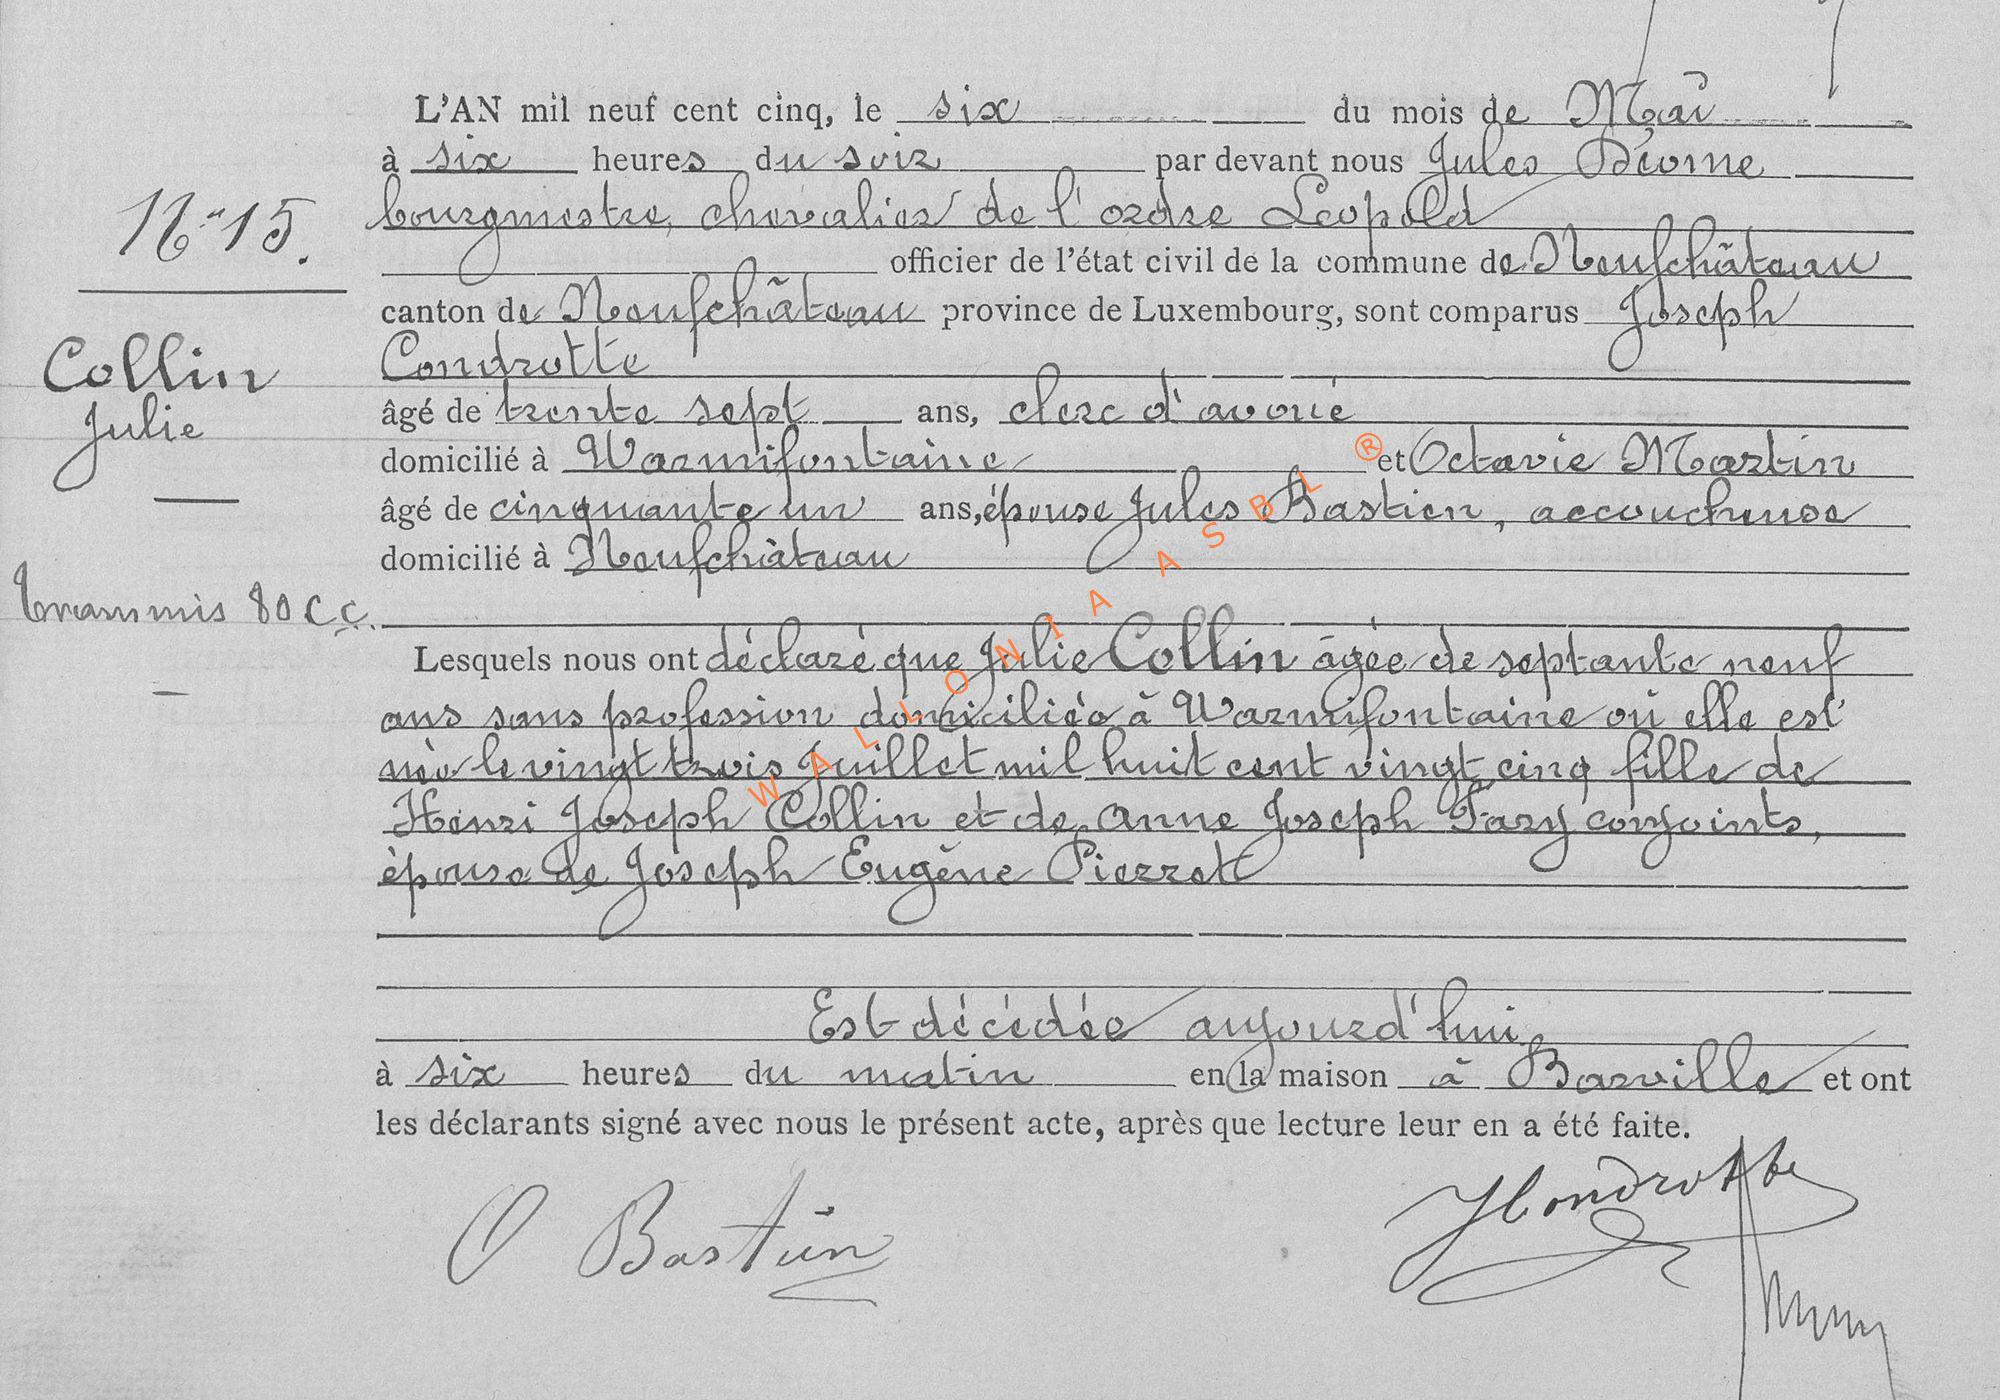 L'AN mil neuf cent cinq, le six du mois de Mai
à six heures du soir par devant nous Jules
bourgmestre, chevalier de l'ordre Léopold
N° 15.
officier de l'état civil de la commune de Neufchâteau
canton de Neufchâteau province de Luxembourg, sont comparus Joseph
Condrotte
Collin
Julie
âgé de trente sept ans, clerc d'avoué
domicilié à Warmifontaine et Octavie Martin
âgé de cinquante un ans, épouse Jules Bastien, accoucheuse
domicilié à Neufchâteau
Transmis 80 C C.
Lesquels nous ont déclaré que Julie Collin âgée de septante neuf
ans sans profession domiciliée à Warmifontaine où elle est
née le vingt trois Juillet mil huit cent vingt cinq fille de
Henri Joseph Collin et de Anne Joseph Fazy conjoints,
épouse de Joseph Eugène Pierret
Est décédée aujourd'hui
à six heures du matin en la maison à Barville et ont
les déclarants signé avec nous le présent acte, après que lecture leur en a été faite.
O Bastien
JCondrotte
WALLONIA ASBL ®